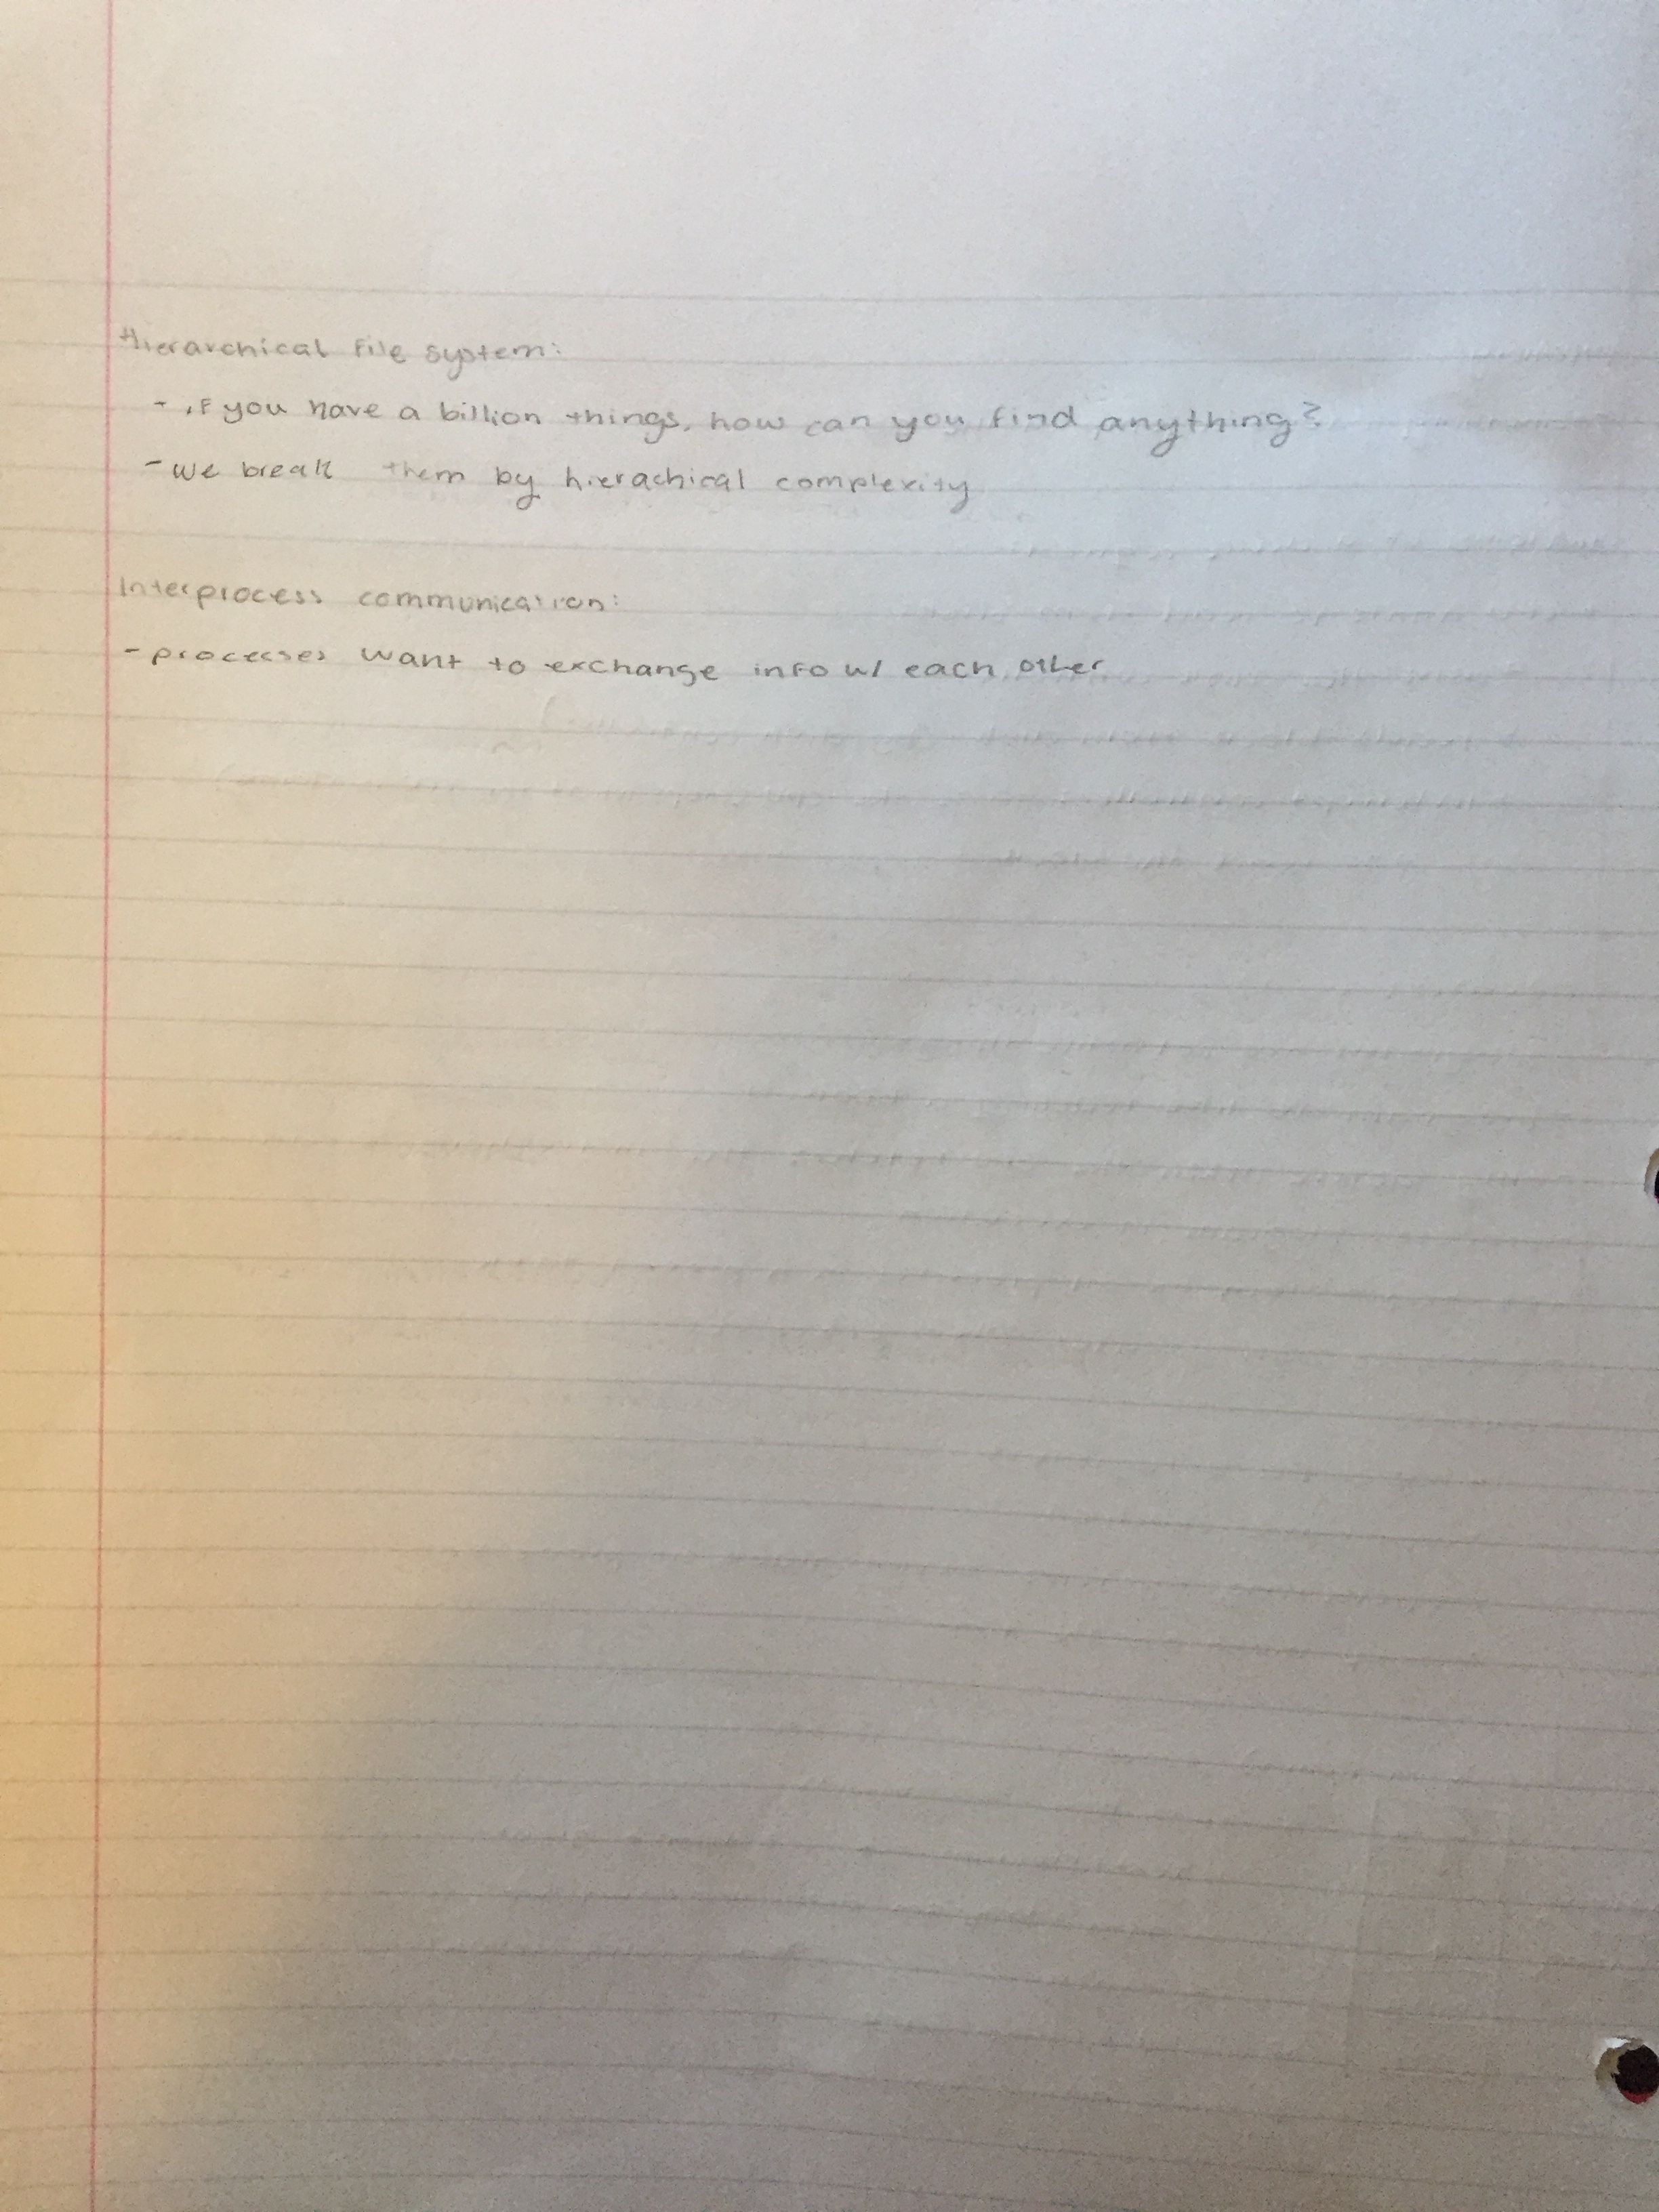 Hierarchical file system:
- if you have a billion things, how can you find anything?
- we break them by hierachical complexity
Interprocess communication:
- processes want to exchange info w/ each other